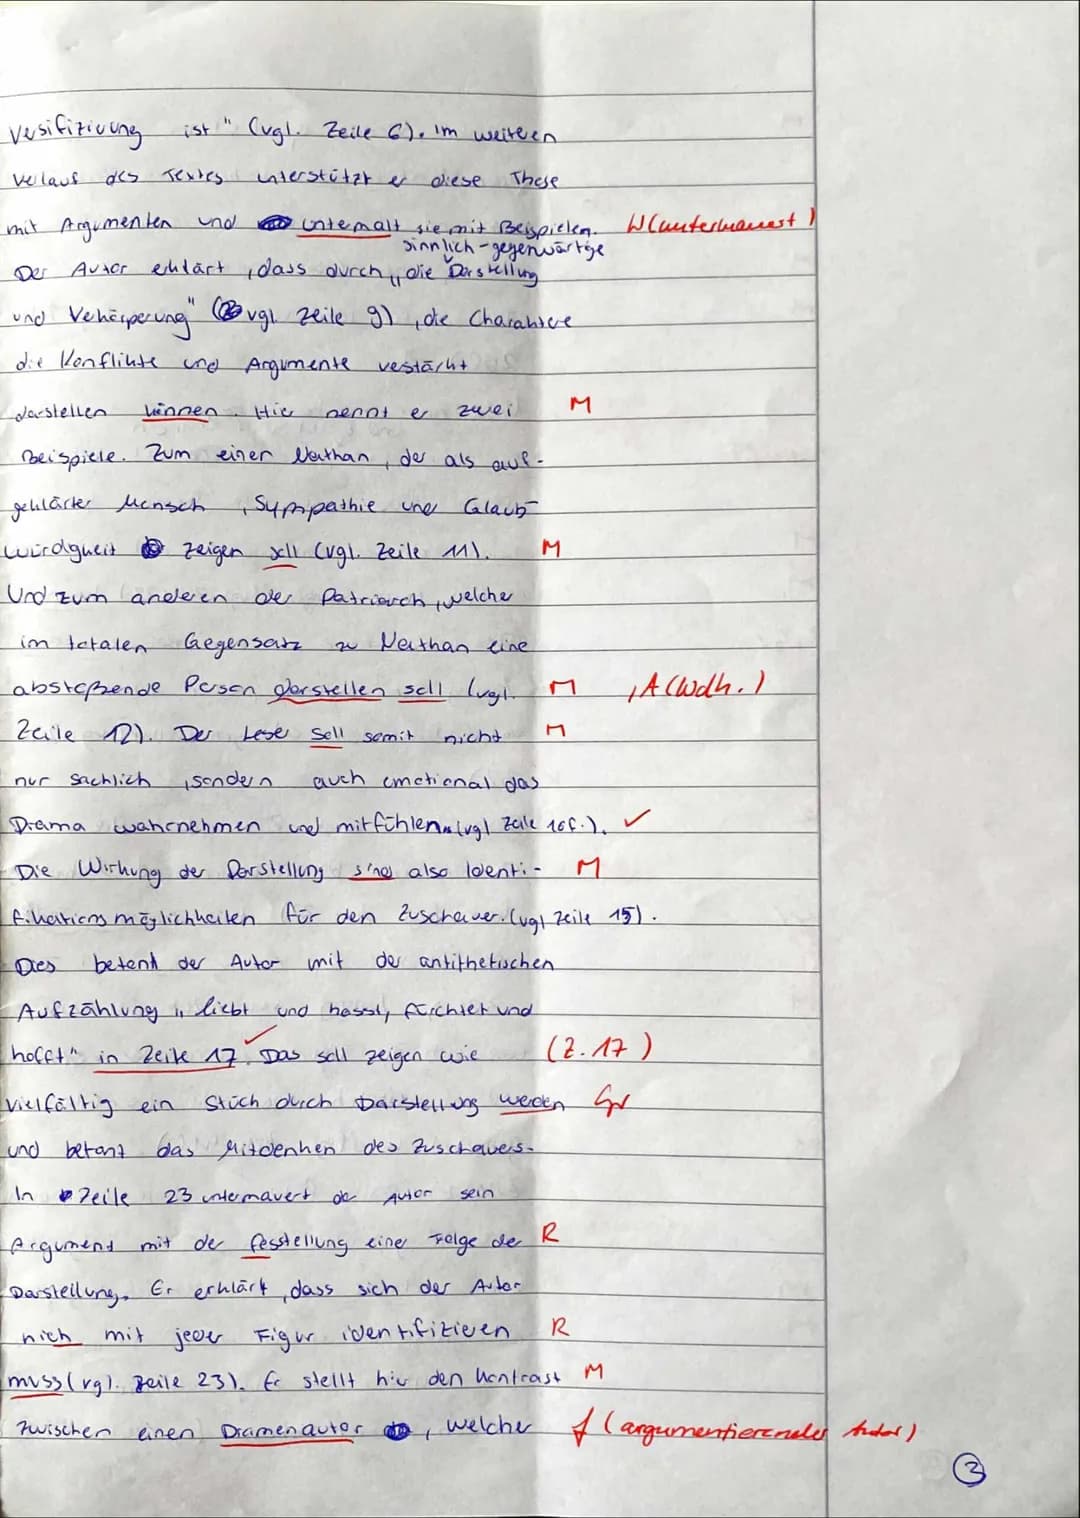 Versifizierung ist" (vgl. Zeile 6). Im weiteren
Verlauf des Textes unterstützt er diese These
mit Argumenten und untemalt sie mit Beispielen. W (untermauert)
sinnlich-gegenwärtige
Der Autor erklärt, dass durch „die Darstellung
und Verkörperung" (vgl. Zeile 9), die Charaktere
die Konflikte und Argumente verstärkt
darstellen können. Hier nennt er zwei M
Beispiele. Zum einen Nathan, der als auf-
geklärter Mensch, Sympathie und Glaub-
würdigkeit zeigen soll (vgl. Zeile 11). M
Und zum anderen der Patriarch, welcher
im totalen Gegensatz zu Nathan eine
abstoßende Person darstellen soll (vgl. M , A (Wdh.)
Zeile 12). Der Leser soll somit nicht M
nur sachlich, sondern auch emotional das
Drama wahrnehmen und mitfühlen (vgl Zeile 16f.). ✓
Die Wirkung der Darstellung sind also Identi- M
fikationsmöglichkeiten für den Zuschauer. (vgl Zeile 15).
Dies betont der Autor mit der antithetischen
Aufzählung „liebt und hasst, fürchtet und
hofft" in Zeile 17. Das soll zeigen wie (Z. 17)
vielfältig ein Stück durch Darstellung werden Gr
und betont das Mitdenken des Zuschauers.
In Zeile 23 untermauert der Autor sein
Argument mit der fesstellung einer Folge der R
Darstellung. Er erklärt, dass sich der Autor
nich mit jeder Figur identifizieren R
muss (vgl. Zeile 23). Er stellt hier den Kontrast M
zwischen einen Dramenautor, welcher f (argumentierender Autor)
3